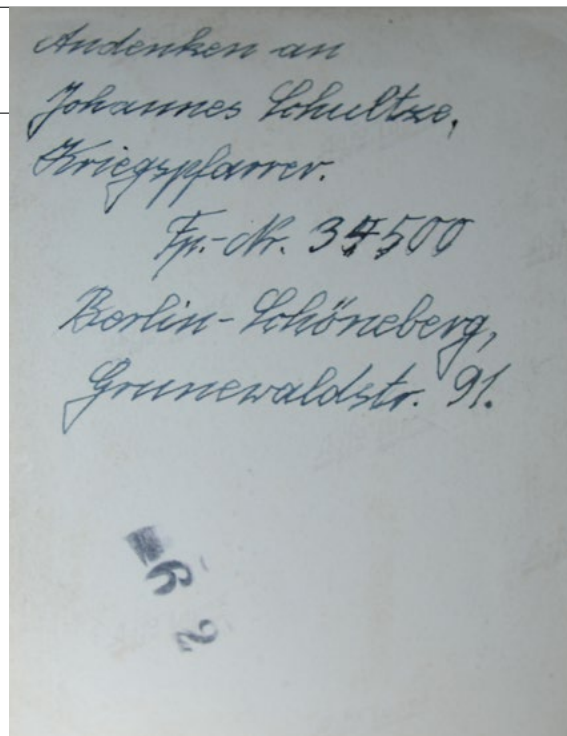 Andenken an
Johannes Schultze,
Kriegspfarrer.
Fp.-Nr. 37500
Berlin-Schöneberg,
Grunewaldstr. 91.
6 2